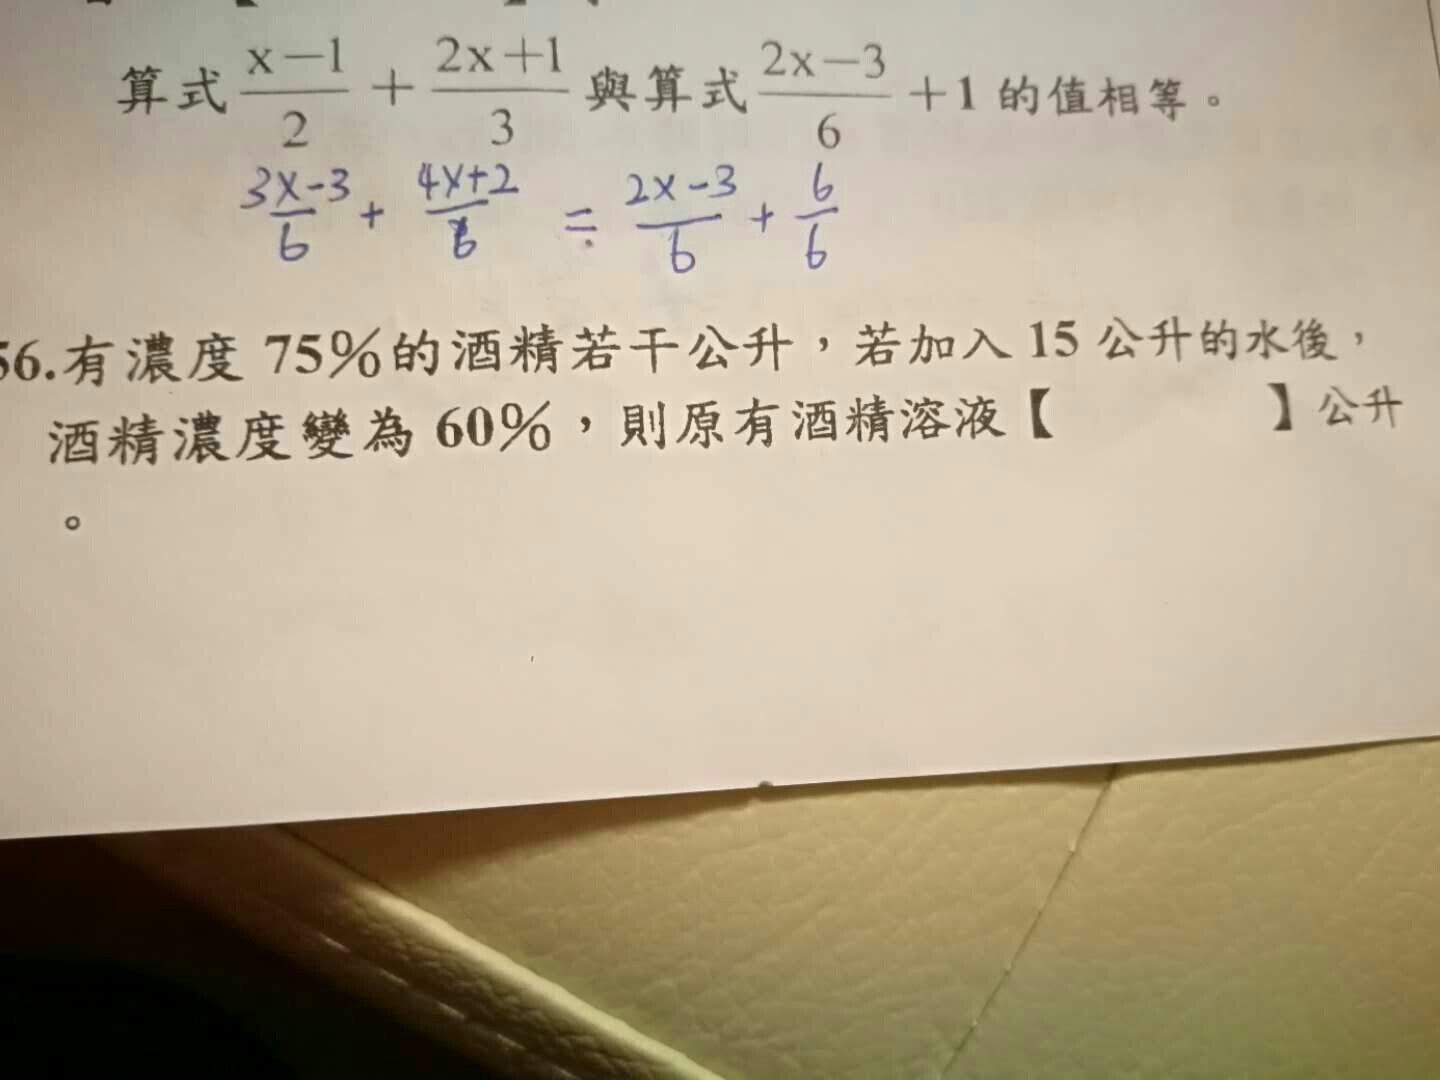 算式 (x-1)/2 + (2x+1)/3 與算式 (2x-3)/6 +1 的值相等。
(3x-3)/6 + (4x+2)/6 = (2x-3)/6 + 6/6
56.有濃度 75%的酒精若干公升，若加入 15 公升的水後，
酒精濃度變為 60%，則原有酒精溶液【 】公升
。